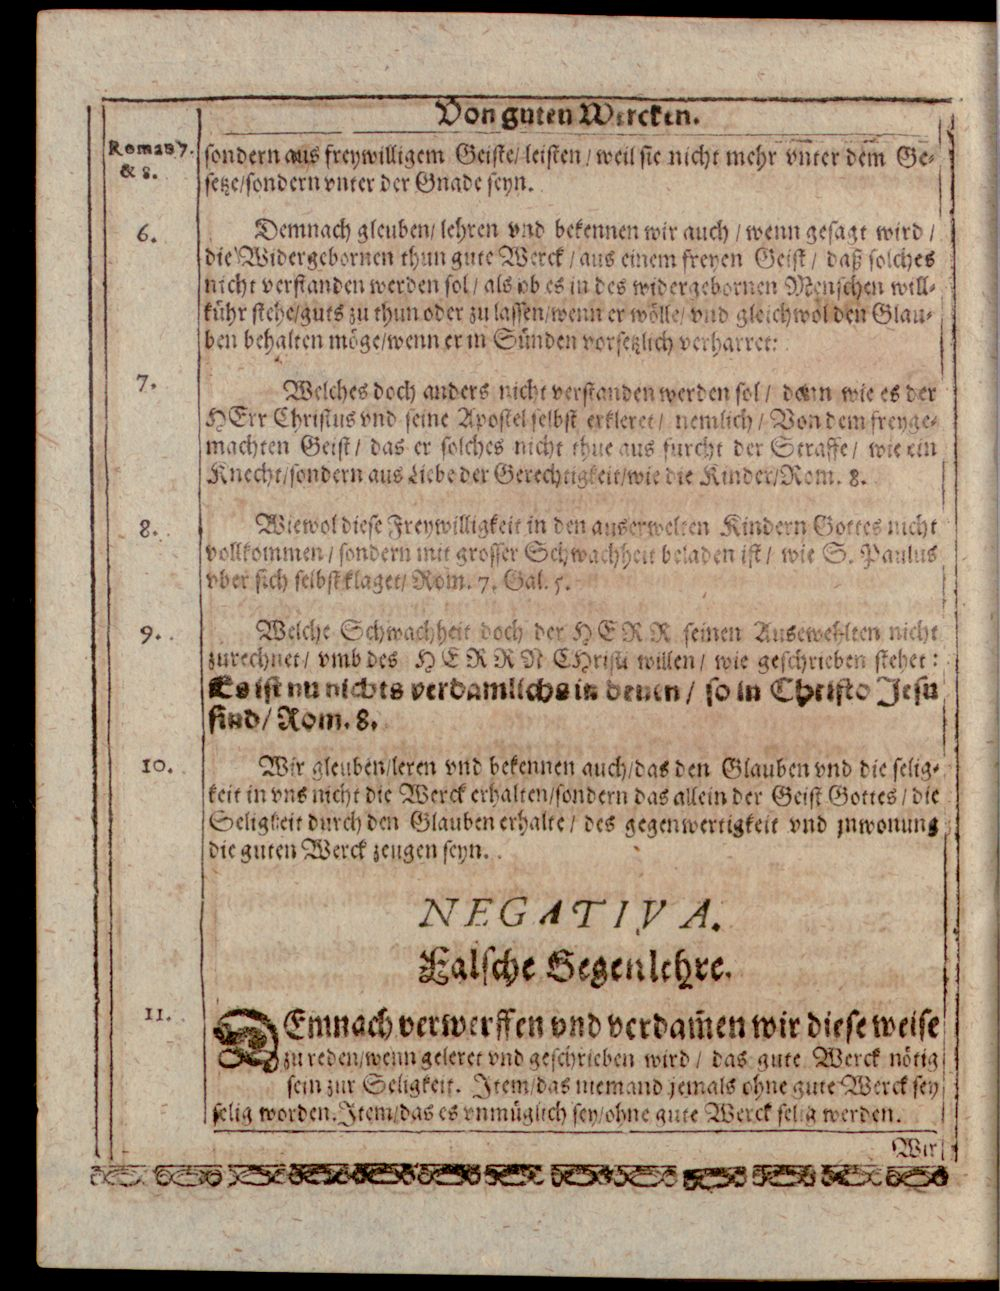 Von guten Wercken.
Roman 7.
& 8.
sondern aus freywilligem Geiste/ leisten / weil sie nicht mehr vnter dem Ge-
setze/sondern vnter der Gnade seyn.
6.
Demnach gleuben/ lehren vnd bekennen wir auch / wenn gesagt wird /
die Widergebornen thun gute Werck / aus einem freyen Geist / daß solches
nicht verstanden werden sol / als ob es in des widergebornen Menschen will-
kühr stehe/guts zu thun oder zu lassen/wenn er wölle/ vnd gleichwol den Glau-
ben behalten möge/wenn er in Sünden vorsetzlich verharret:
7.
Welches doch anders nicht verstanden werden sol / denn wie es der
HErr Christus vnd seine Apostel selbst erkleret / nemlich / Von dem freyge-
machten Geist / das er solches nicht thue aus furcht der Straffe / wie ein
Knecht/sondern aus Liebe der Gerechtigkeit/wie die Kinder/Rom. 8.
8.
Wiewol diese Freywilligkeit in den auserwelten Kindern Gottes nicht
vollkommen / sondern mit grosser Schwachheit beladen ist / wie S. Paulus
vber sich selbst klaget/ Rom. 7. Gal. 5.
9.
Welche Schwachheit doch der HERR seinen Ausewehlten nicht
zurechnet / vmb des HERRN CHristi willen / wie geschrieben stehet:
Es ist nu nichts verdamlichs in denen / so in Christo Jesu
sind/ Rom. 8.
10.
Wir gleuben/leren vnd bekennen auch/das den Glauben vnd die selig-
keit in vns nicht die Werck erhalten/sondern das allein der Geist Gottes / die
Seligkeit durch den Glauben erhalte / des gegenwertigkeit vnd jnwonung
die guten Werck zeugen seyn.
NEGATIVA.
Falsche Gegenlehre.
11.
DEmnach verwerffen vnd verdam̃en wir diese weise
zu reden/wenn geleret vnd geschrieben wird / das gute Werck nötig
sein zur Seligkeit. Item/das niemand jemals ohne gute Werck sey
selig worden. Item/das es vnmüglich sey/ohne gute Werck selig werden.
Wir